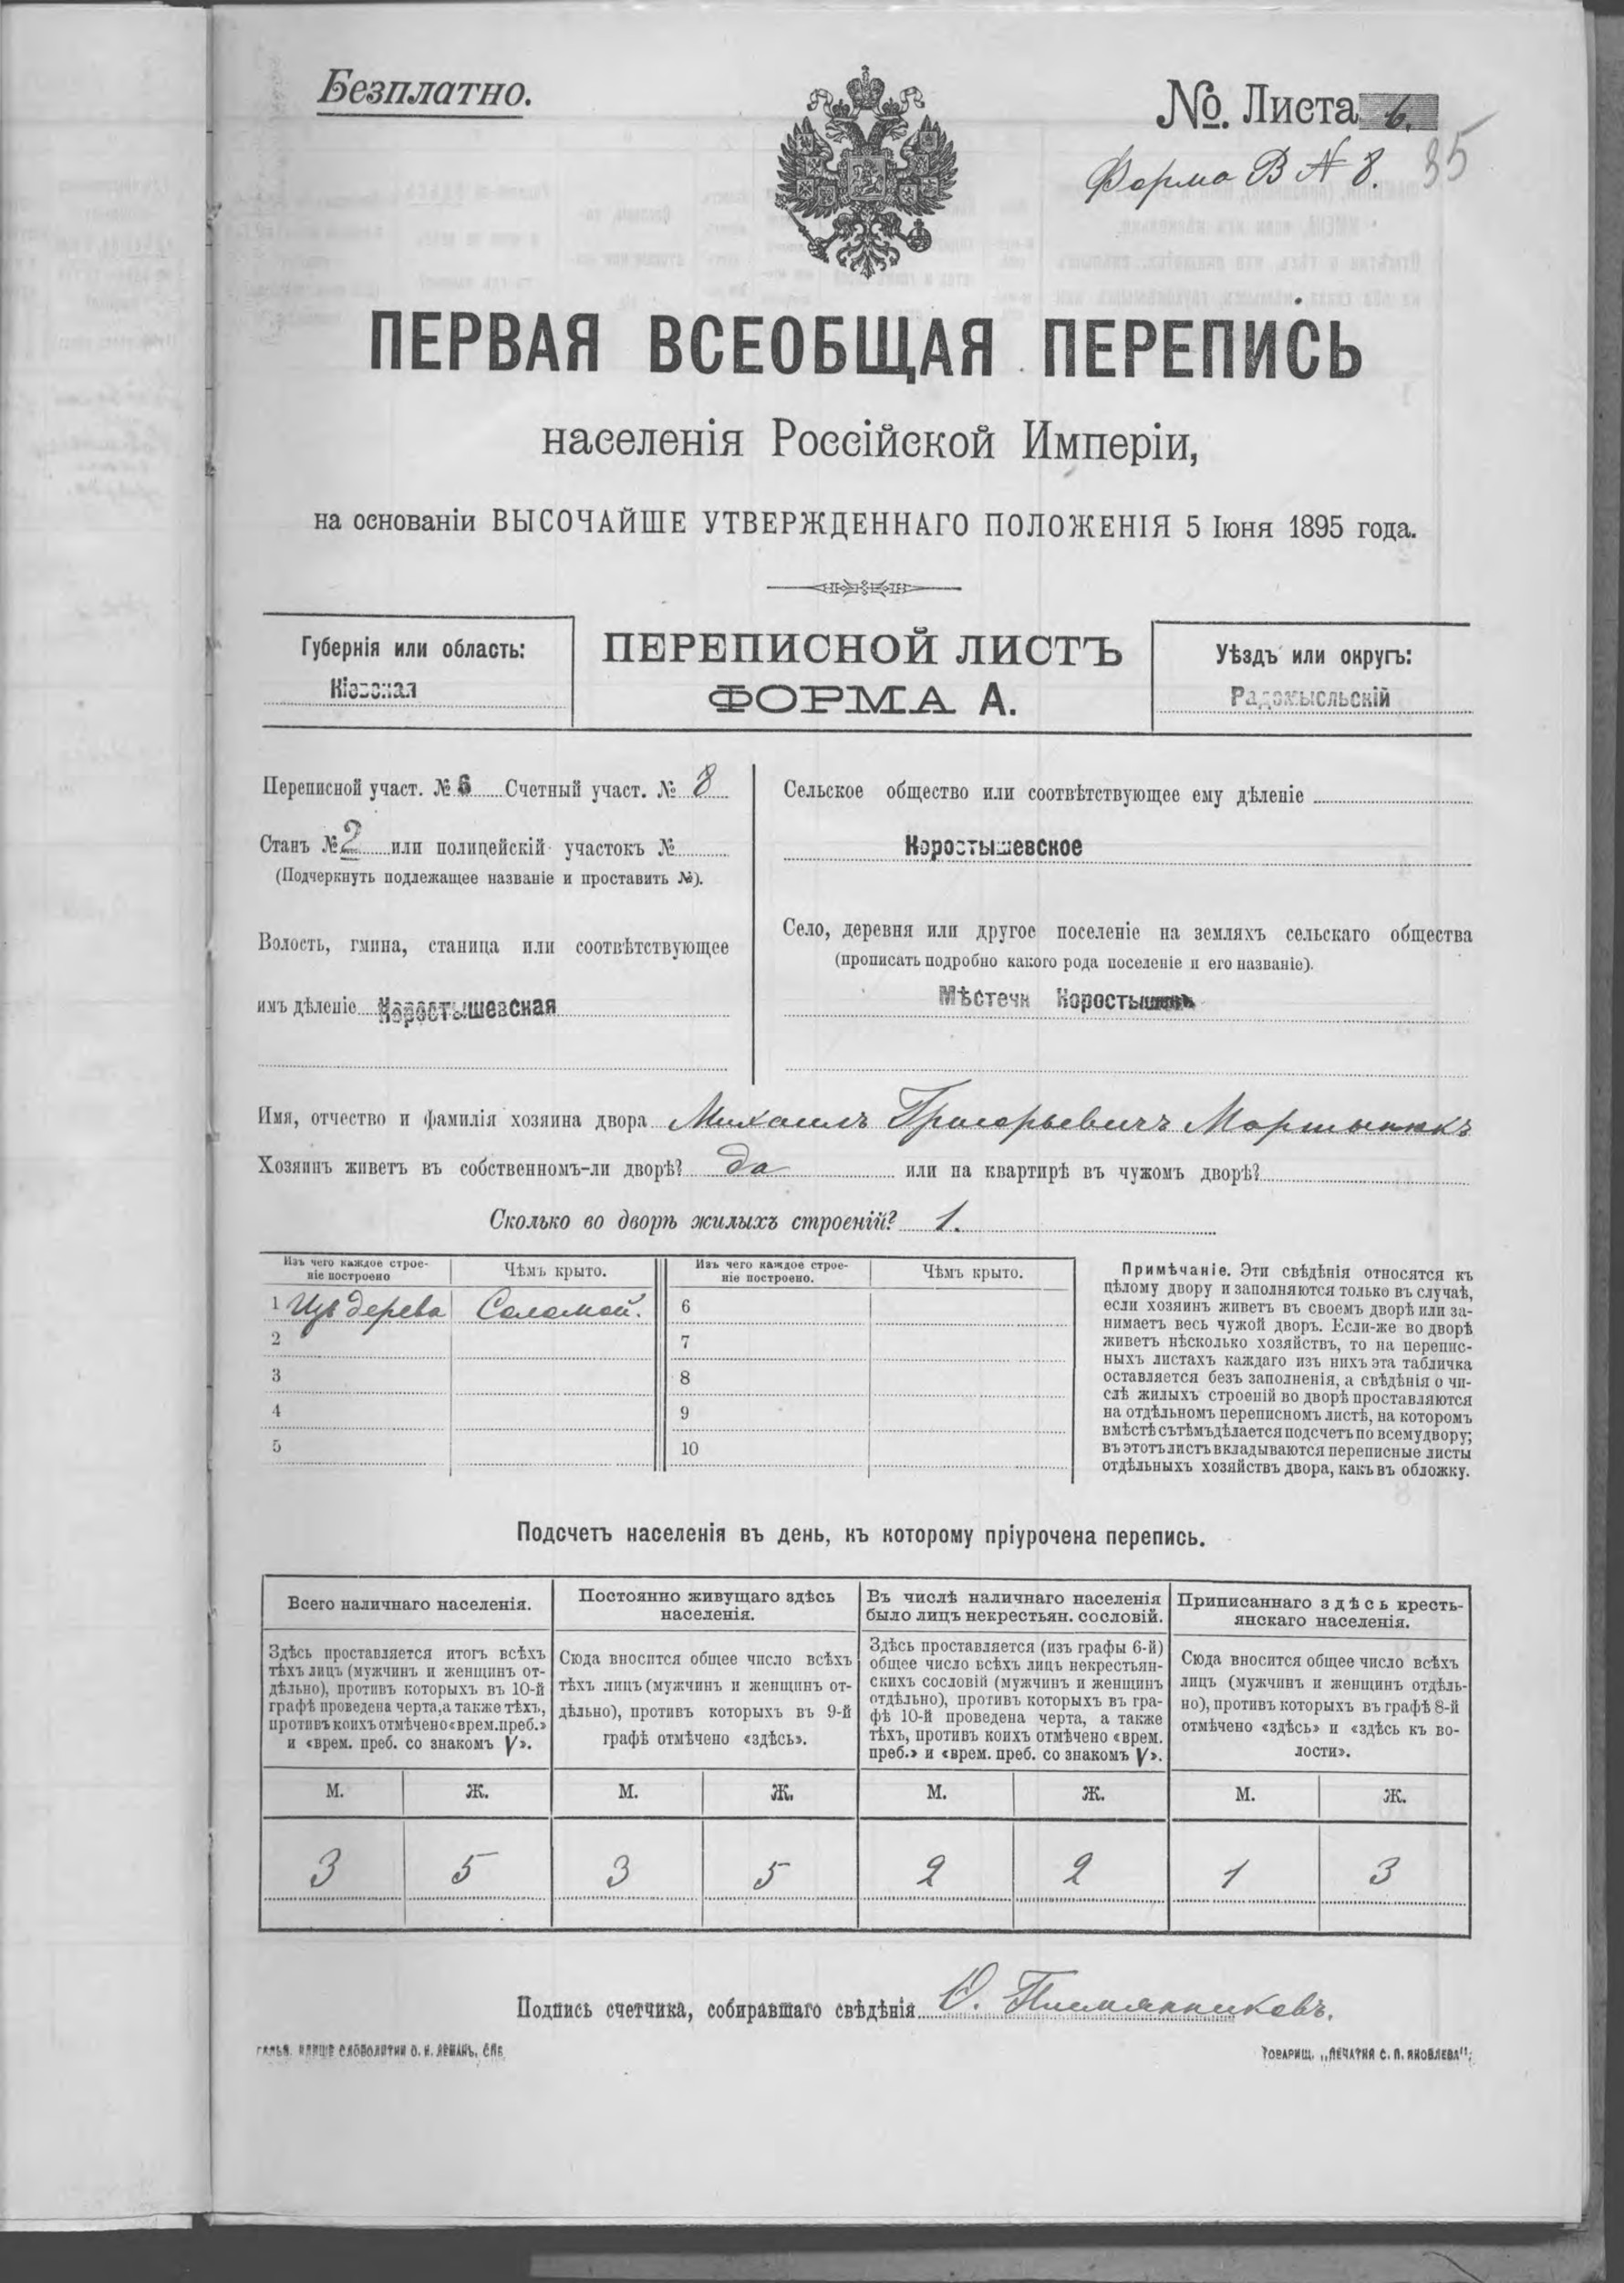 Безплатно.
№. Листа 6.
Форма В № 8. 35
ПЕРВАЯ ВСЕОБЩАЯ ПЕРЕПИСЬ
населенія Россійской Имперіи,
на основаніи ВЫСОЧАЙШЕ УТВЕРЖДЕННАГО ПОЛОЖЕНІЯ 5 Іюня 1895 года.
Губернія или область:
Кіевская
ПЕРЕПИСНОЙ ЛИСТЪ
ФОРМА А.
Уѣздъ или округъ:
Радомысльскій
Переписной участ. № 6 Счетный участ. № 8
Станъ № 2 или полицейскій участокъ №
(Подчеркнуть подлежащее названіе и проставить №).
Волость, гмина, станица или соотвѣтствующее
имъ дѣленіе Коростышевская
Сельское общество или соотвѣтствующее ему дѣленіе
Коростышевское
Село, деревня или другое поселеніе на земляхъ сельскаго общества
(прописать подробно какого рода поселеніе и его названіе).
Мѣстечк Коростышевъ
Имя, отчество и фамилія хозяина двора Михаилъ Григорьевичъ Мартынюкъ
Хозяинъ живетъ въ собственномъ-ли дворѣ? да или на квартирѣ въ чужомъ дворѣ?
Сколько во дворѣ жилыхъ строеній? 1.
Изъ чего каждое строе-
ніе построено
Чѣмъ крыто.
Изъ чего каждое строе-
ніе построено.
Чѣмъ крыто.
1 Изъ дерева Соломой. 6
2 7
3 8
4 9
5 10
Примѣчаніе. Эти свѣдѣнія относятся къ
цѣлому двору и заполняются только въ случаѣ,
если хозяинъ живетъ въ своемъ дворѣ или за-
нимаетъ весь чужой дворъ. Если-же во дворѣ
живетъ нѣсколько хозяйствъ, то на перепис-
ныхъ листахъ каждаго изъ нихъ эта табличка
оставляется безъ заполненія, а свѣдѣнія о чи-
слѣ жилыхъ строеній во дворѣ проставляются
на отдѣльномъ переписномъ листѣ, на которомъ
вмѣстѣ съ тѣмъ дѣлается подсчетъ по всему двору;
въ этотъ листъ вкладываются переписные листы
отдѣльныхъ хозяйствъ двора, какъ въ обложку.
Подсчетъ населенія въ день, къ которому пріурочена перепись.
Всего наличнаго населенія.
Здѣсь проставляется итогъ всѣхъ
тѣхъ лицъ (мужчинъ и женщинъ от-
дѣльно), противъ которыхъ въ 10-й
графѣ проведена черта, а также тѣхъ,
противъ коихъ отмѣчено «врем. преб.»
и «врем. преб. со знакомъ V».
Постоянно живущаго здѣсь
населенія.
Сюда вносится общее число всѣхъ
тѣхъ лицъ (мужчинъ и женщинъ от-
дѣльно), противъ которыхъ въ 9-й
графѣ отмѣчено «здѣсь».
Въ числѣ наличнаго населенія
было лицъ некрестьян. сословій.
Здѣсь проставляется (изъ графы 6-й)
общее число всѣхъ лицъ некрестьян-
скихъ сословій (мужчинъ и женщинъ
отдѣльно), противъ которыхъ въ гра-
фѣ 10-й проведена черта, а также
тѣхъ, противъ коихъ отмѣчено «врем.
преб.» и «врем. преб. со знакомъ V».
Приписаннаго здѣсь кресть-
янскаго населенія.
Сюда вносится общее число всѣхъ
лицъ (мужчинъ и женщинъ отдѣль-
но), противъ которыхъ въ графѣ 8-й
отмѣчено «здѣсь» и «здѣсь къ во-
лости».
М. Ж. М. Ж. М. Ж. М. Ж.
3 5 3 5 2 2 1 3
Подпись счетчика, собиравшаго свѣдѣнія О. Племянниковъ.
СЛОВОЛИТНИ О. И. ЛЕМАНЪ, СПБ
ТОВАРИЩ. „ПЕЧАТНЯ С. П. ЯКОВЛЕВА".